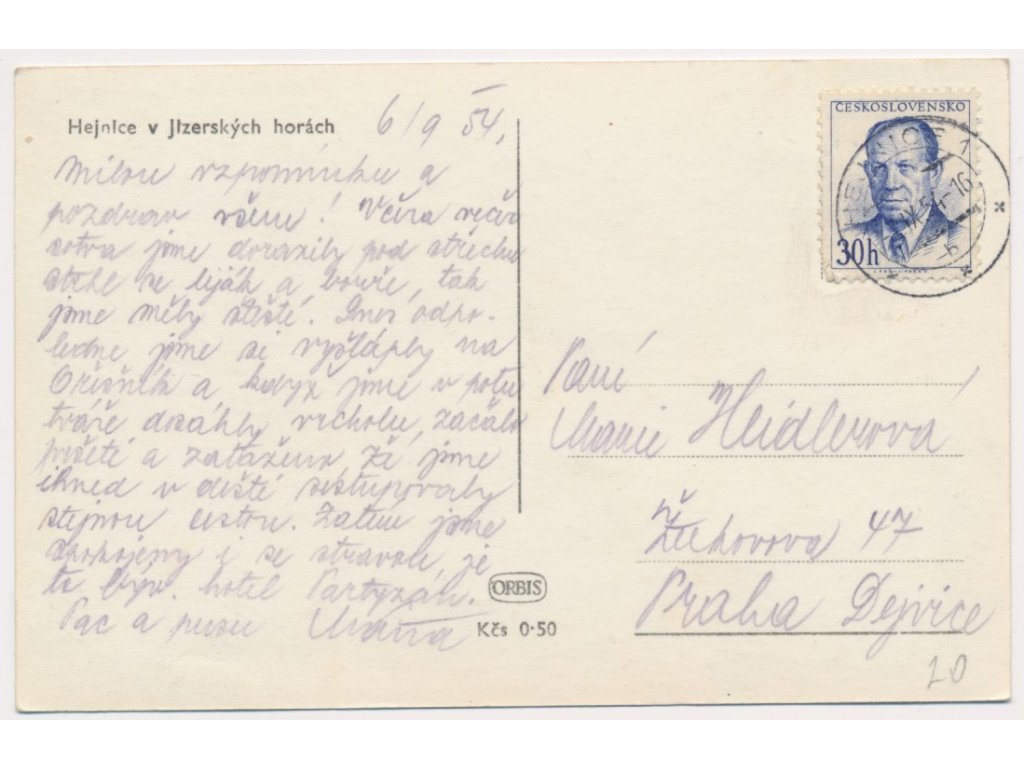 Hejnice v Jizerských horách
6/9 54,
Milou vzpomínku a
pozdrav všem! Včera večer
sotva jsme dorazily pod střechu
strhl se liják a bouře, tak
jsme měly štěstí. Dnes odpo-
ledne jsme si vyšláply na
Ořešník a když jsme v potu
tváře dosáhly vrcholu, začalo
pršeti a zataženo, že jsme
ihned v dešti sestupovaly
stejnou cestou. Zatím jsme
spokojeny i se stravou, je
to býv. hotel Partyzán.
Pac a pusu
ORBIS
Kčs 0·50
ČESKOSLOVENSKO
30h
HEJNICE 1
Paní
Marie Heidlerová
47
Praha Dejvice
20